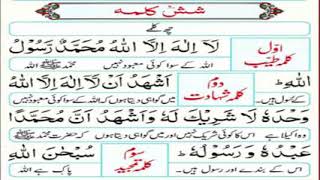 شش کلمہ
چھ کلمے
اوّل کلمہ طیّب
لَآ اِلٰهَ اِلَّا اللهُ مُحَمَّدٌ رَّسُوْلُ
اللہ کے سوا کوئی معبود نہیں محمد ﷺ
اللهِ ؕ دوم کلمہ شہادت اَشْهَدُ اَنْ لَّآ اِلٰهَ اِلَّا اللهُ
اللہ کے رسول ہیں۔ میں گواہی دیتا ہوں کہ اللہ کے سوا کوئی معبود نہیں
وَحْدَهٗ لَا شَرِيْكَ لَهٗ وَاَشْهَدُ اَنَّ مُحَمَّدًا
وہ اکیلا ہے اس کا کوئی شریک نہیں اور میں گواہی دیتا ہوں کہ حضرت محمد ﷺ
عَبْدُهٗ وَرَسُوْلُهٗ ؕ سوم کلمہ تمجید سُبْحٰنَ اللهِ
اس کے بندے اور رسول ہیں۔ پاک ہے اللہ